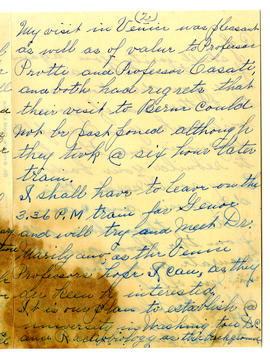 (2)
My visit in Venice was pleasant
as well as of value to Professor
Protti and Professor Casati,
and both had regrets that
their visit to Berne could
not be postponed although
they took @ six hour later
train.
I shall have to leave on the
3:36 P.M train for Genoa
and will try and meet Dr.
as the Venice
Professors hope I can, as they
are keenly interested,
It is our plan to establish @
university in Washington D.C
and Radiobiology as the background